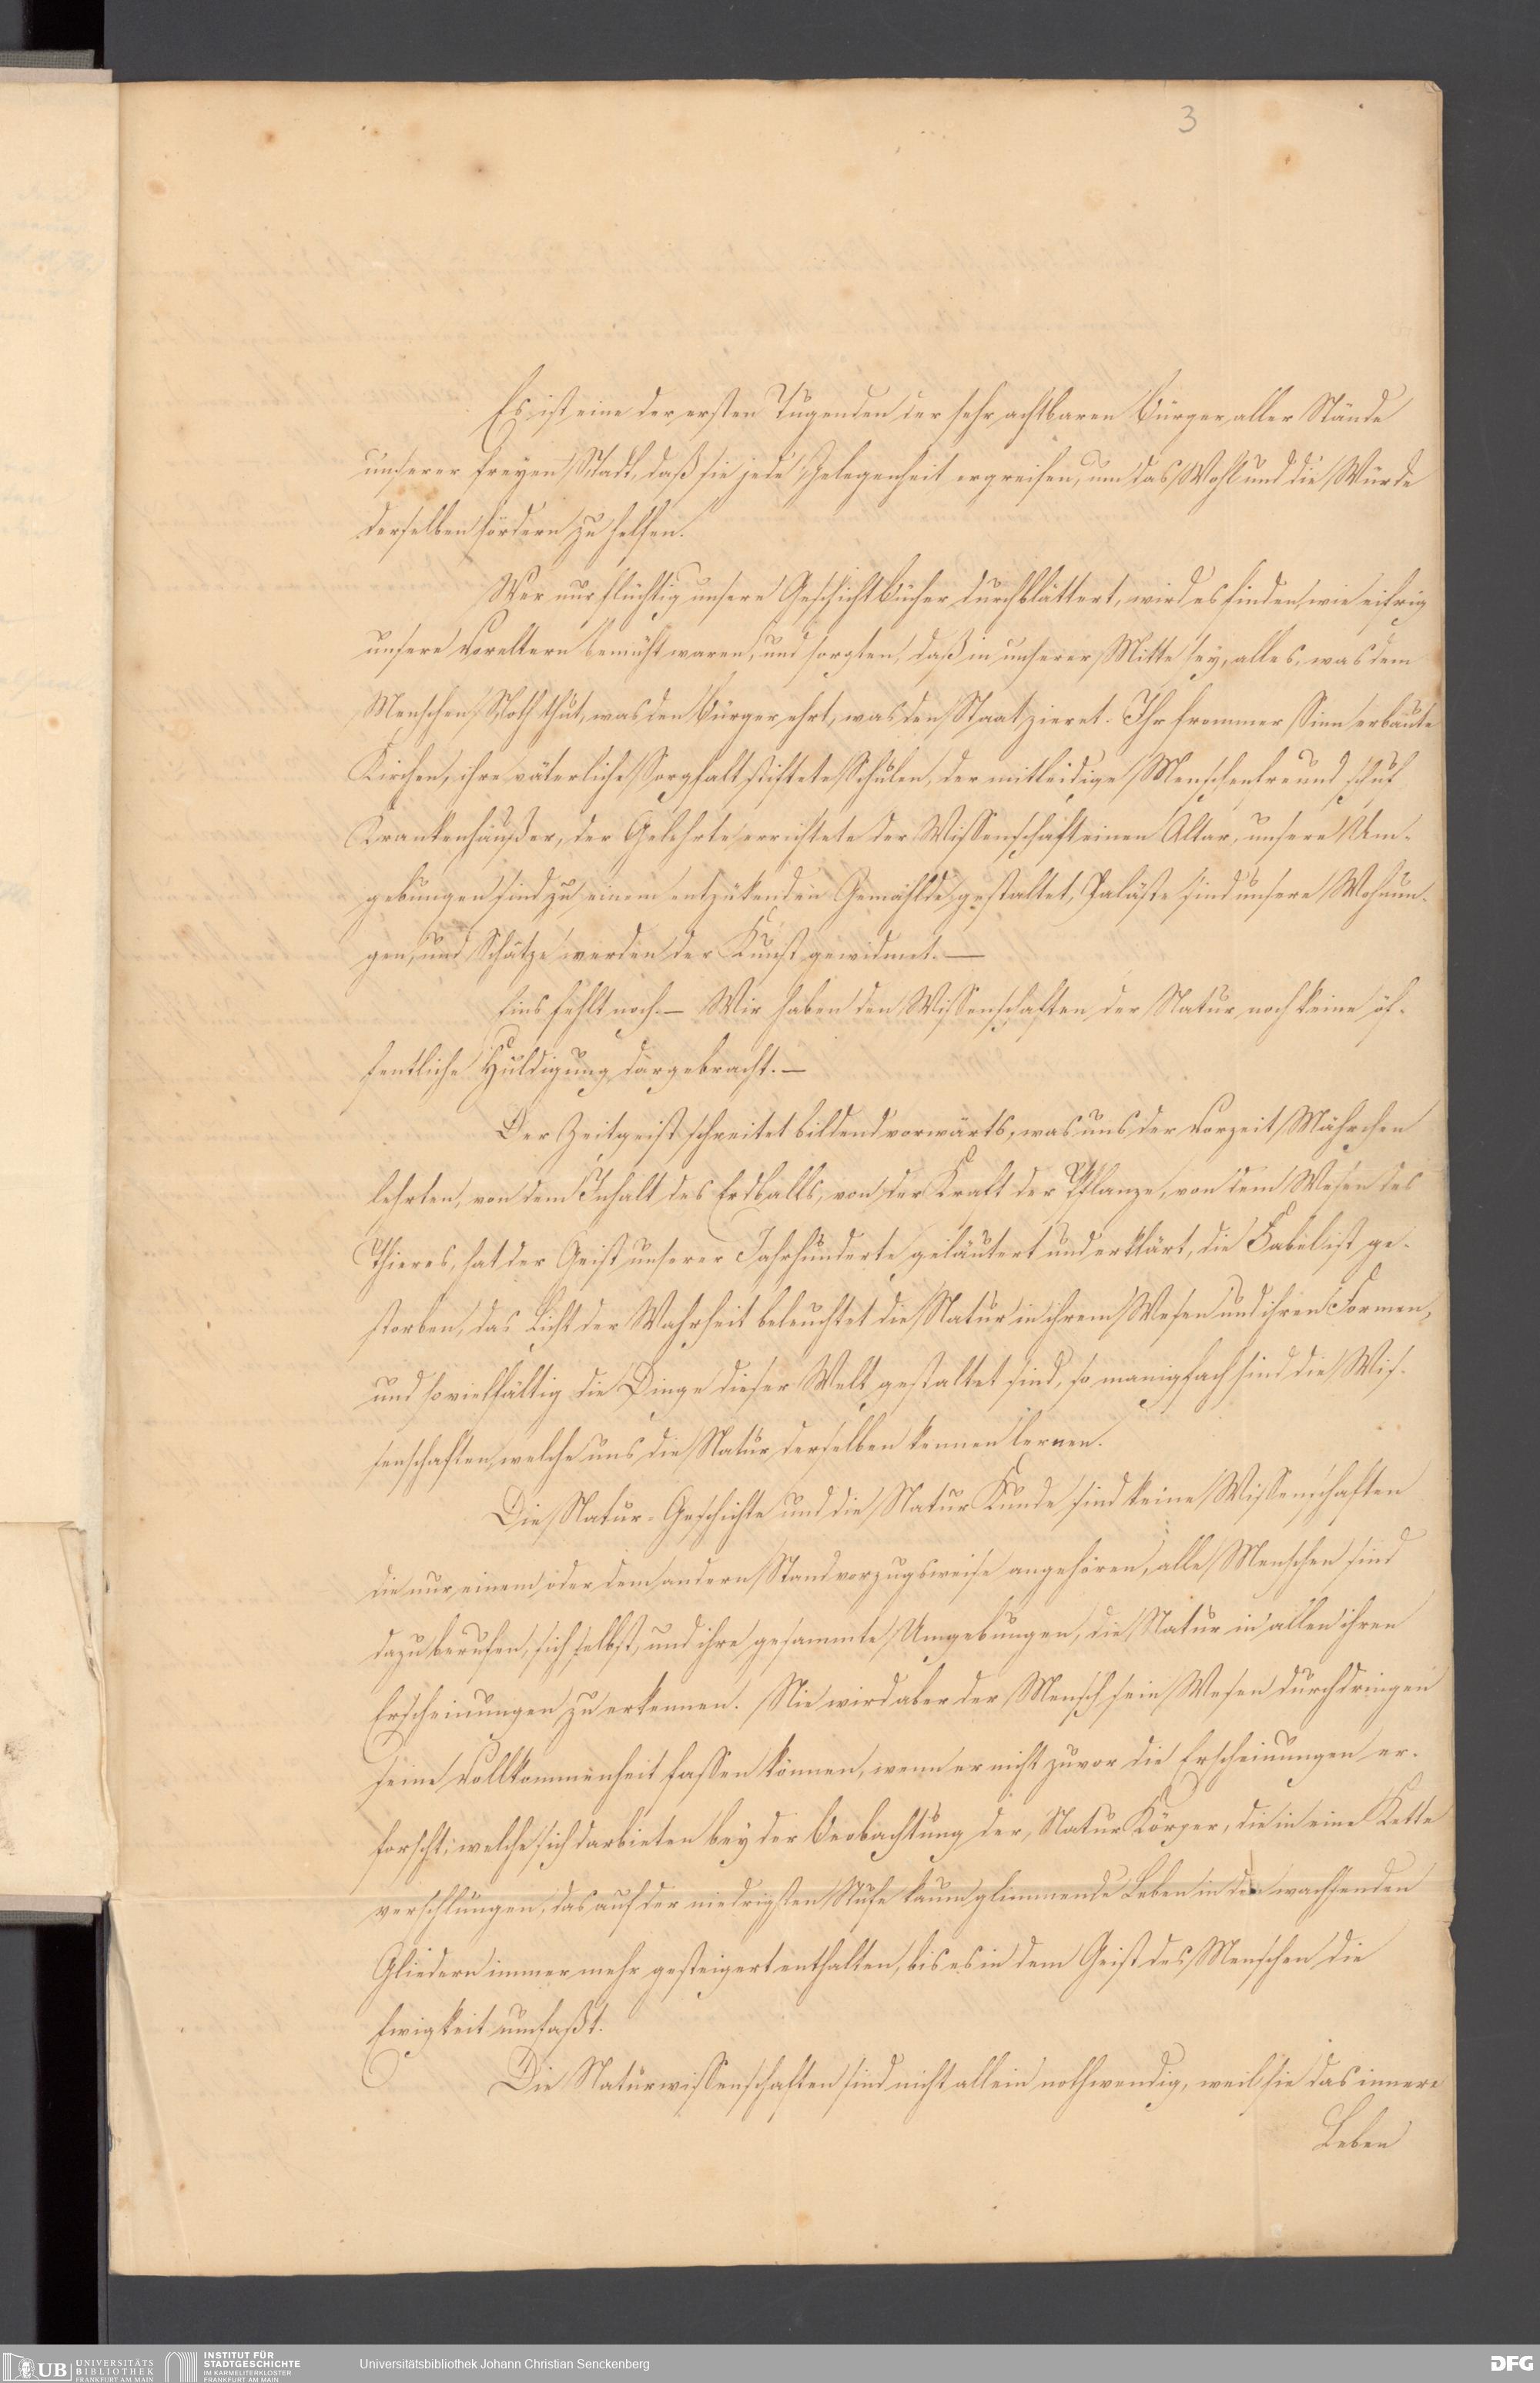 3
Es ist eine der ersten Tugenden der sehr achtbaren Bürger aller Stände
unserer freyen Stadt, daß sie jede Gelegenheit ergreifen, um das Wohl und die Würde
derselben fördern zu helfen.
Wer nur flüchtig unsere Geschichtbücher durchblättert, wird es finden, wie eifrig
unsere Voreltern bemüht waren, und sorgten, daß in unserer Mitte sey, alles, was dem
Menschen Noth thut, was den Bürger ehrt, was den Staat zieret. Ihr frommer Sinn erbaute
Kirchen, ihre väterliche Sorgfalt stiftete Schulen, der mitleidige Menschenfreund schuf
Krankenhäußer, der Gelehrte errichtete der Wissenschaft einen Altar, unsere Um-
gebungen sind zu einem entzükenden Gemählde gestaltet, Paläste sind unsere Wohnun-
gen, und Schätze werden der Kunst gewidmet. —
Eins fehlt noch. — Wir haben den Wissenschaften der Natur noch keine öf-
fentliche Huldigung dargebracht. —
Der Zeitgeist schreitet bildend vorwärts, was uns der Vorzeit Mährchen
lehrten, von dem Inhalt des Erdballs, von der Kraft der Pflanze, von dem Wesen des
Thieres, hat der Geist unserer Jahrhunderte geläutert und erklärt, die Fabel ist ge-
storben, das Licht der Wahrheit beleuchtet die Natur in ihrem Wesen und ihren Formen,
und so vielfältig die Dinge dieser Welt gestaltet sind, so manigfach sind die Wis-
senschaften, welche uns die Natur derselben kennen lernen.
Die Natur-Geschichte und die Natur Kunde sind keine Wissenschaften
die nur einem oder dem andern Stand vorzugsweise angehören, alle Menschen sind
dazu berufen, sich selbst, und ihre gesammte Umgebungen, die Natur in allen ihren
Erscheinungen zu erkennen. Nie wird aber der Mensch sein Wesen durchdringen
seine Vollkommenheit fassen können, wenn er nicht zuvor die Erscheinungen er-
forscht, welche sich darbieten bey der Beobachtung der Natur Körper, die in eine Kette
verschlungen, das auf der niedrigsten Stufe kaum glimmende Leben in den wachsenden
Gliedern immer mehr gesteigert enthalten, bis es in dem Geist des Menschen die
Ewigkeit umfaßt.
Die Naturwissenschaften sind nicht allein nothwendig, weil sie das innere
Leben
UB UNIVERSITÄTS
BIBLIOTHEK
FRANKFURT AM MAIN
INSTITUT FÜR
STADTGESCHICHTE
IM KARMELITERKLOSTER
FRANKFURT AM MAIN
Universitätsbibliothek Johann Christian Senckenberg
DFG